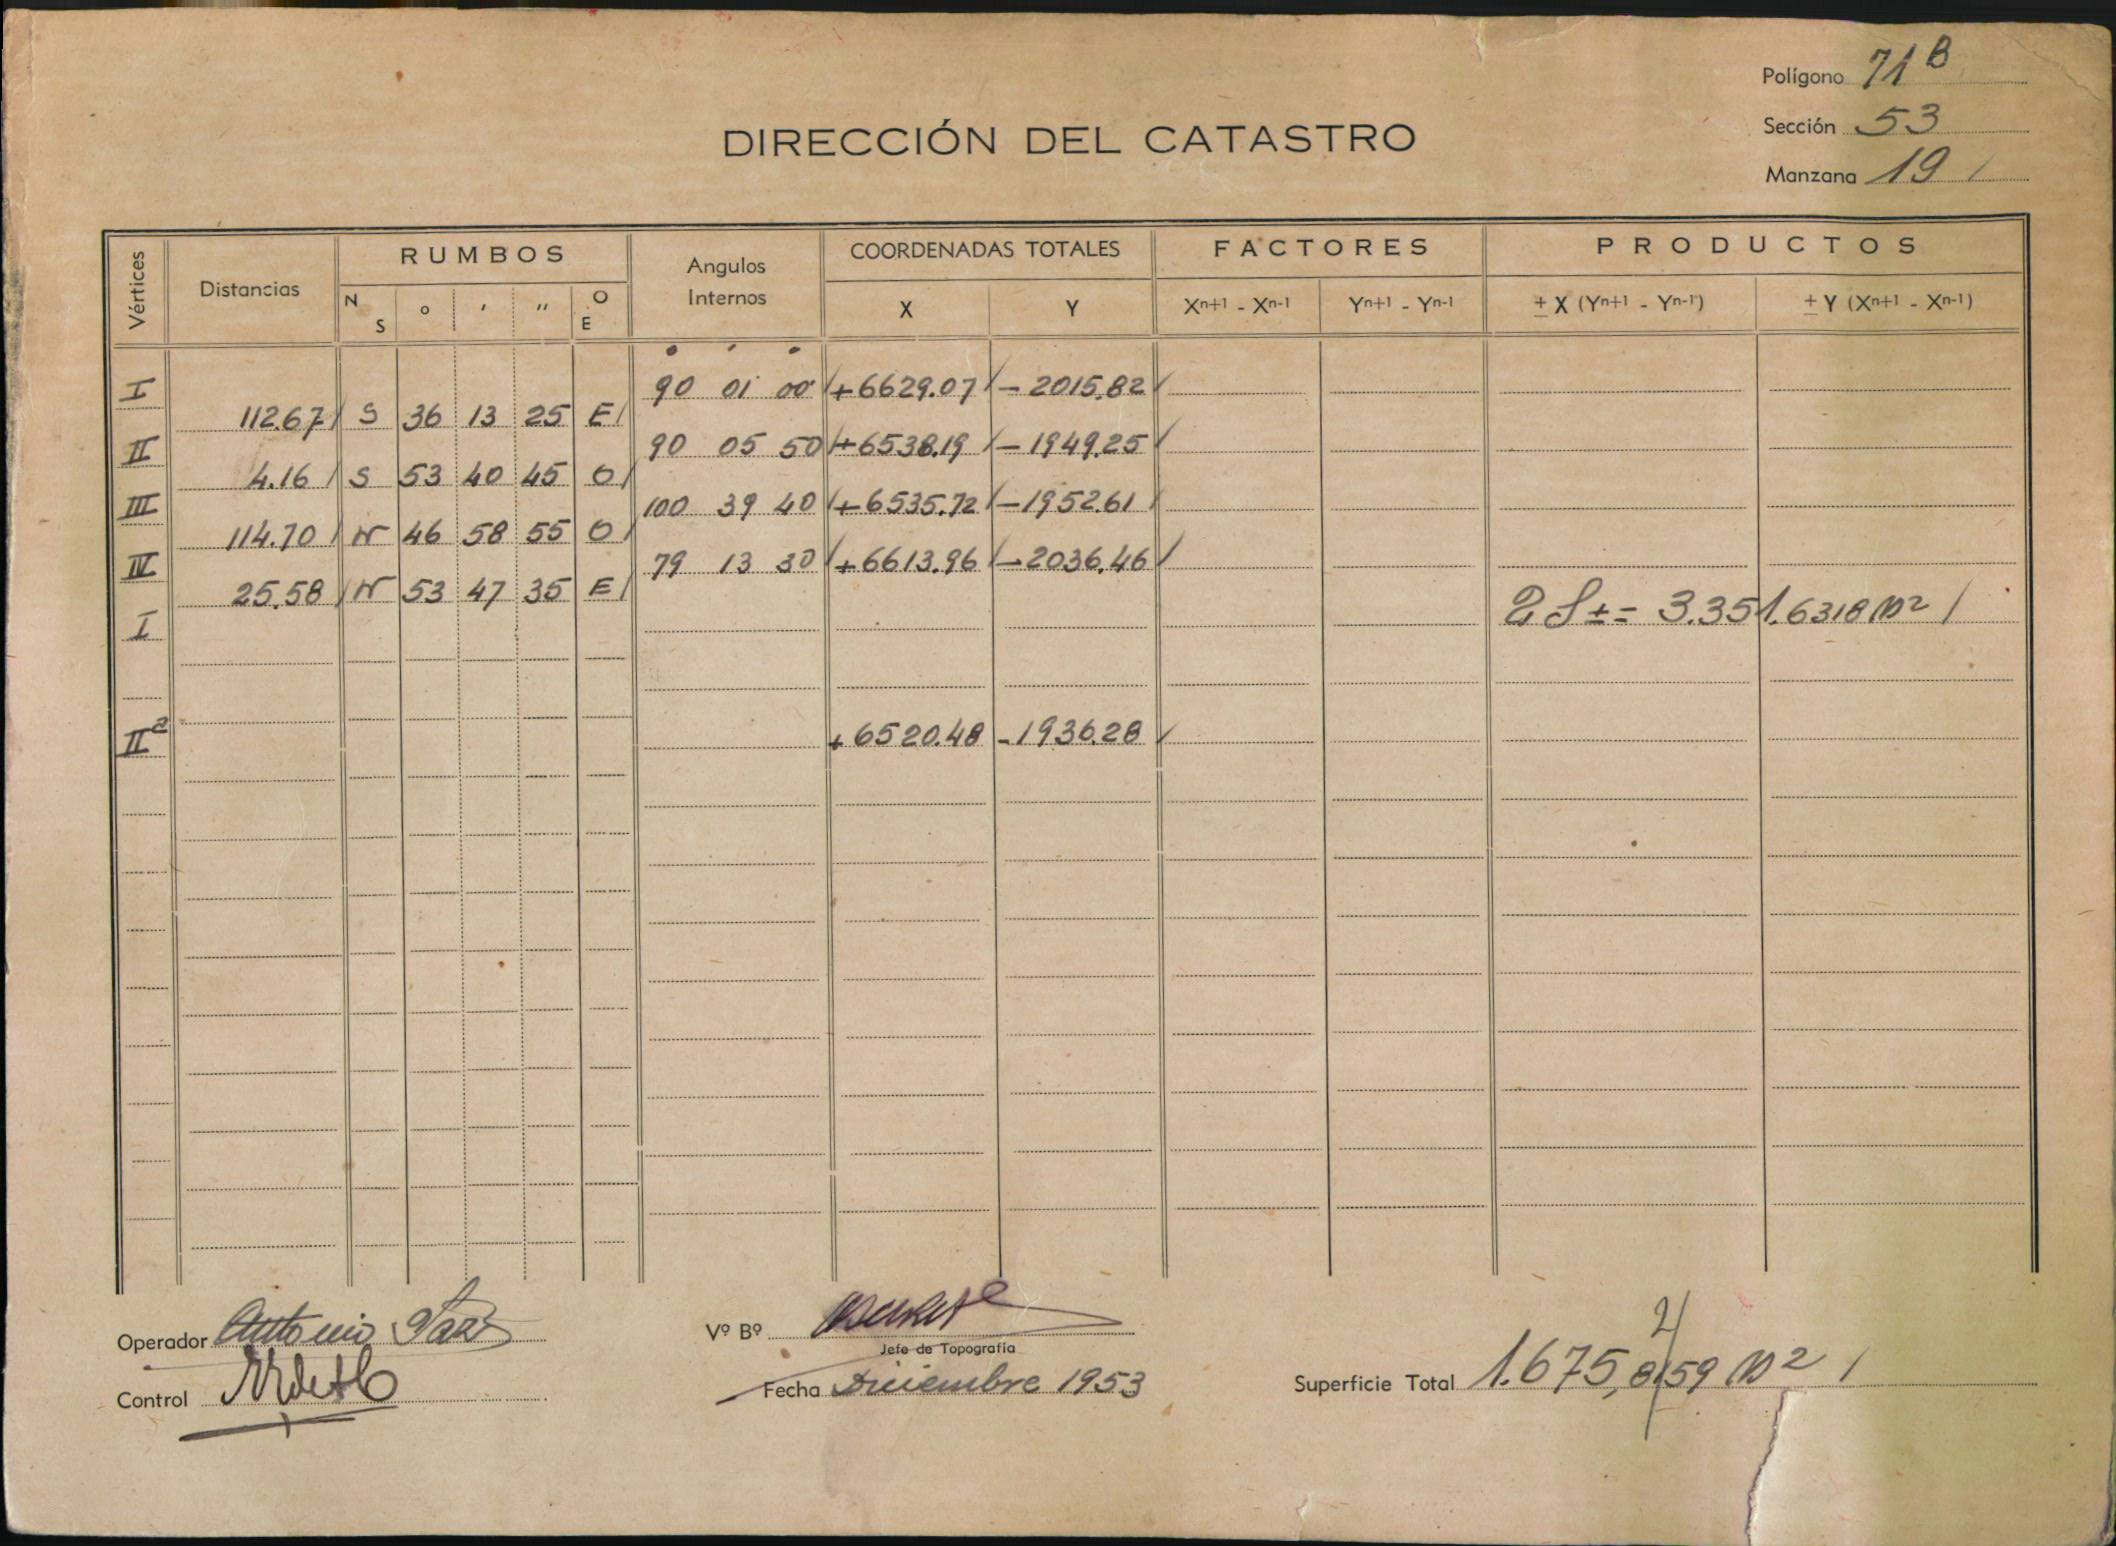 Polígono 71 B
Sección 53
Manzana 19 /
DIRECCIÓN DEL CATASTRO
Vértices Distancias RUMBOS Angulos Internos COORDENADAS TOTALES FACTORES PRODUCTOS
N S o ' '' O E X Y Xn+1 - Xn-1 Yn+1 - Yn-1 ± X (Yn+1 - Yn-1) ± Y (Xn+1 - Xn-1)
I 90 01 00 +6629.07 / - 2015.82 /
112.67 / S 36 13 25 E /
II 90 05 50 / +6538.19 / - 1949.25 /
4.16 / S 53 40 45 O /
III 100 39 40 / +6535.72 / - 1952.61 /
114.70 / N 46 58 55 O /
IV 79 13 30 / +6613.96 / - 2036.46 /
25.58 / N 53 47 35 E /
I 2 S ± = 3.351.6318 m2 /
II a +6520.48 - 1936.28 /
Operador Antonio
Vº Bº
Jefe de Topografía
Control
Fecha Diciembre 1953
Superficie Total 1.675,8159 m2 /